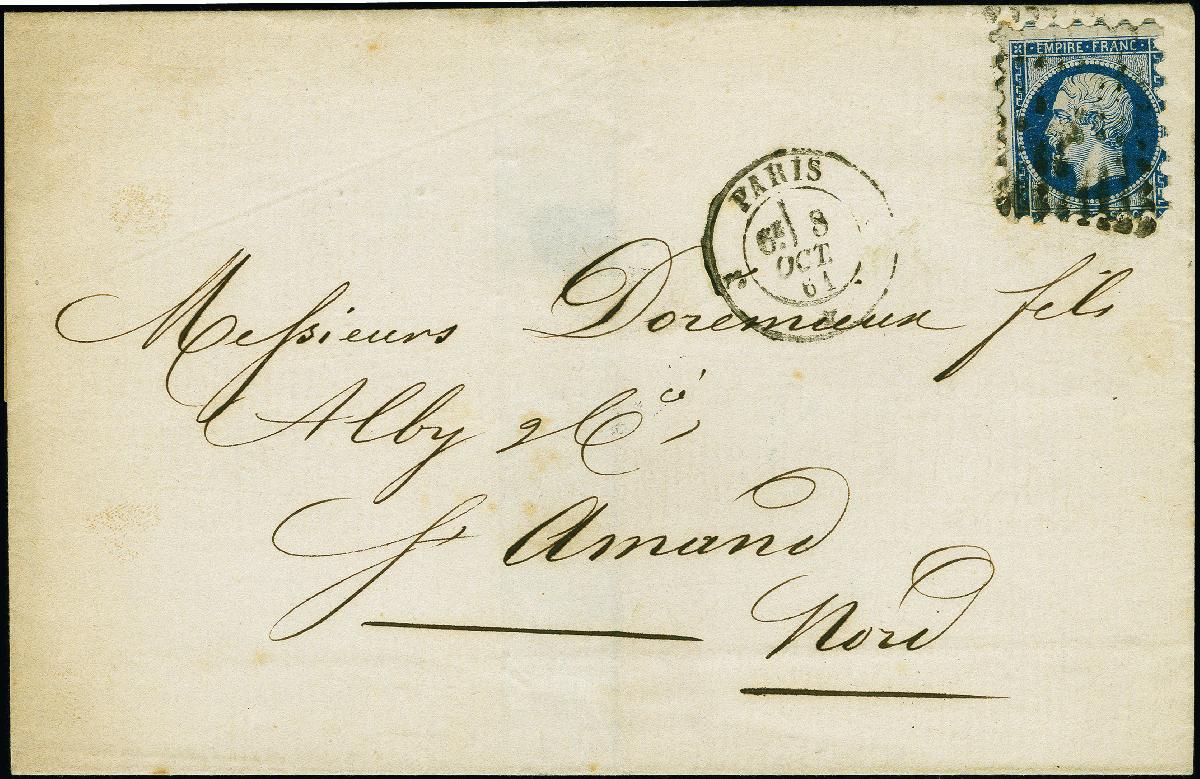 EMPIRE · FRANC
PARIS
8
OCT.
61
Messieurs Doremieux fils
Alby & Cie
St Amand
Nord